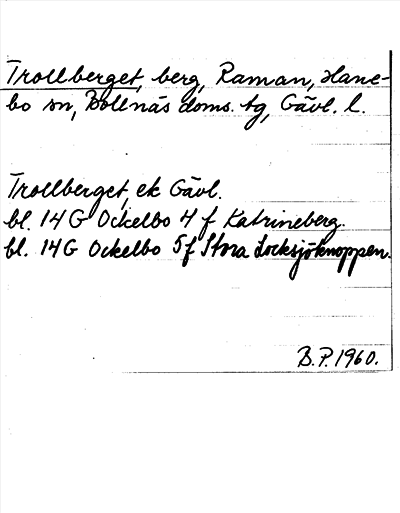 Trollberget, berg, Raman, Hane-
bo sn, Bollnäs doms. tg, Gävl. l.
Trollberget, ek Gävl.
bl. 14 G Ockelbo 4 f Katrineberg.
bl. 14 G Ockelbo 5 f Stora Locksjöknoppen.
B.P. 1960.